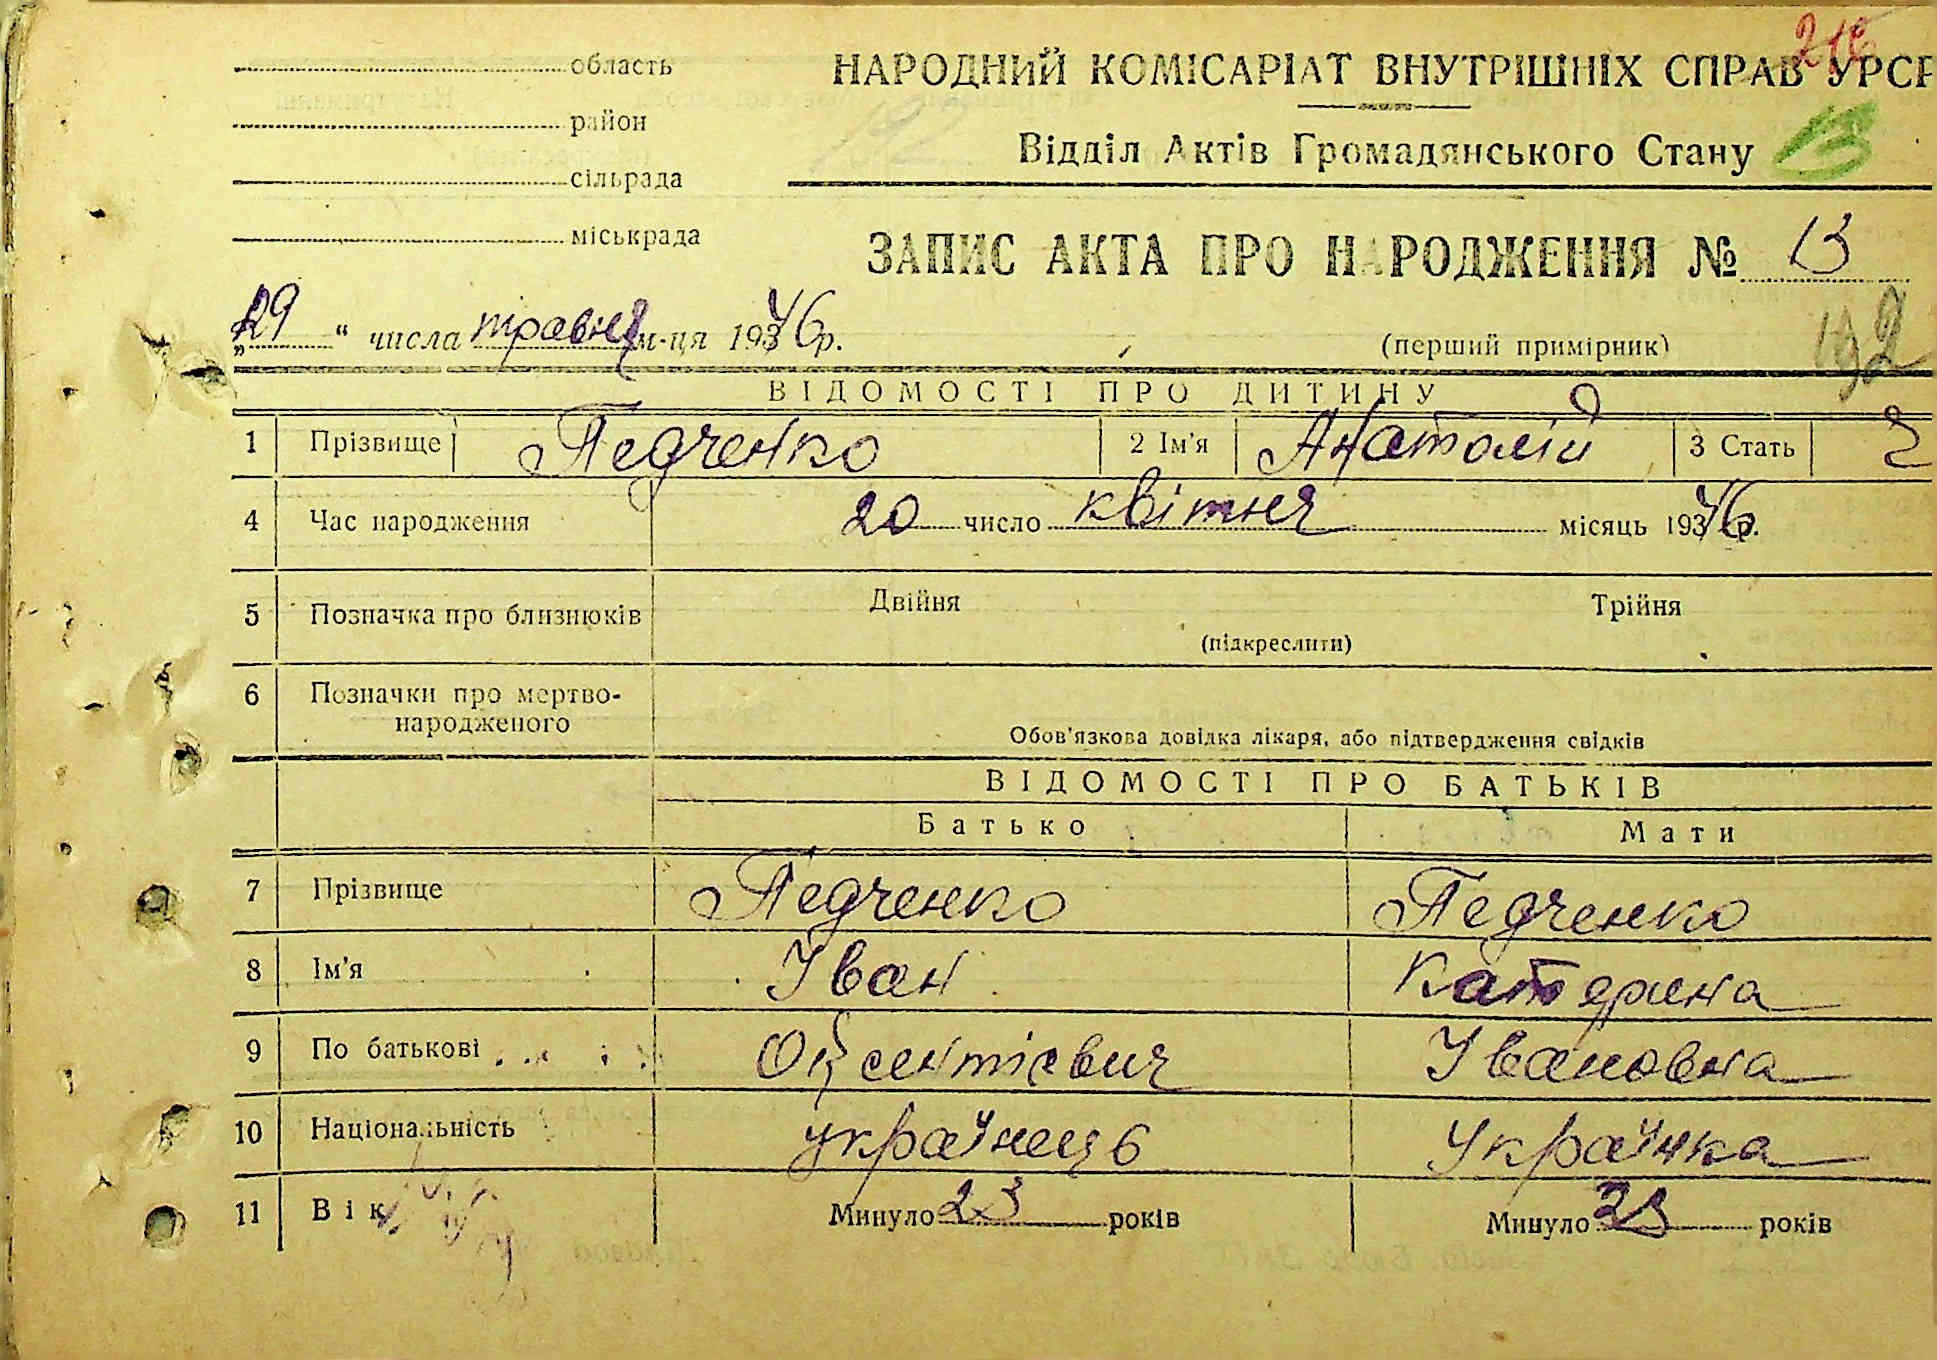 область
район
сільрада
міськрада
НАРОДНИЙ КОМІСАРІАТ ВНУТРІШНІХ СПРАВ УРСР
Відділ Актів Громадянського Стану 13
ЗАПИС АКТА ПРО НАРОДЖЕННЯ № 13
„29“ числа травня м-ця 1946 р.
(перший примірник) 192
ВІДОМОСТІ ПРО ДИТИНУ
1 Прізвище Педченко 2 Ім'я Анатолій 3 Стать ч
4 Час народження 20 число квітня місяць 1946 р.
5 Позначка про близнюків Двійня Трійня
(підкреслити)
6 Позначки про мертво-
народженого
Обов'язкова довідка лікаря, або підтвердження свідків
ВІДОМОСТІ ПРО БАТЬКІВ
Батько Мати
7 Прізвище Педченко Педченко
8 Ім'я Іван Катерина
9 По батькові Оксентієвич Івановна
10 Національність українець Українка
11 Вік Минуло 23 років Минуло років